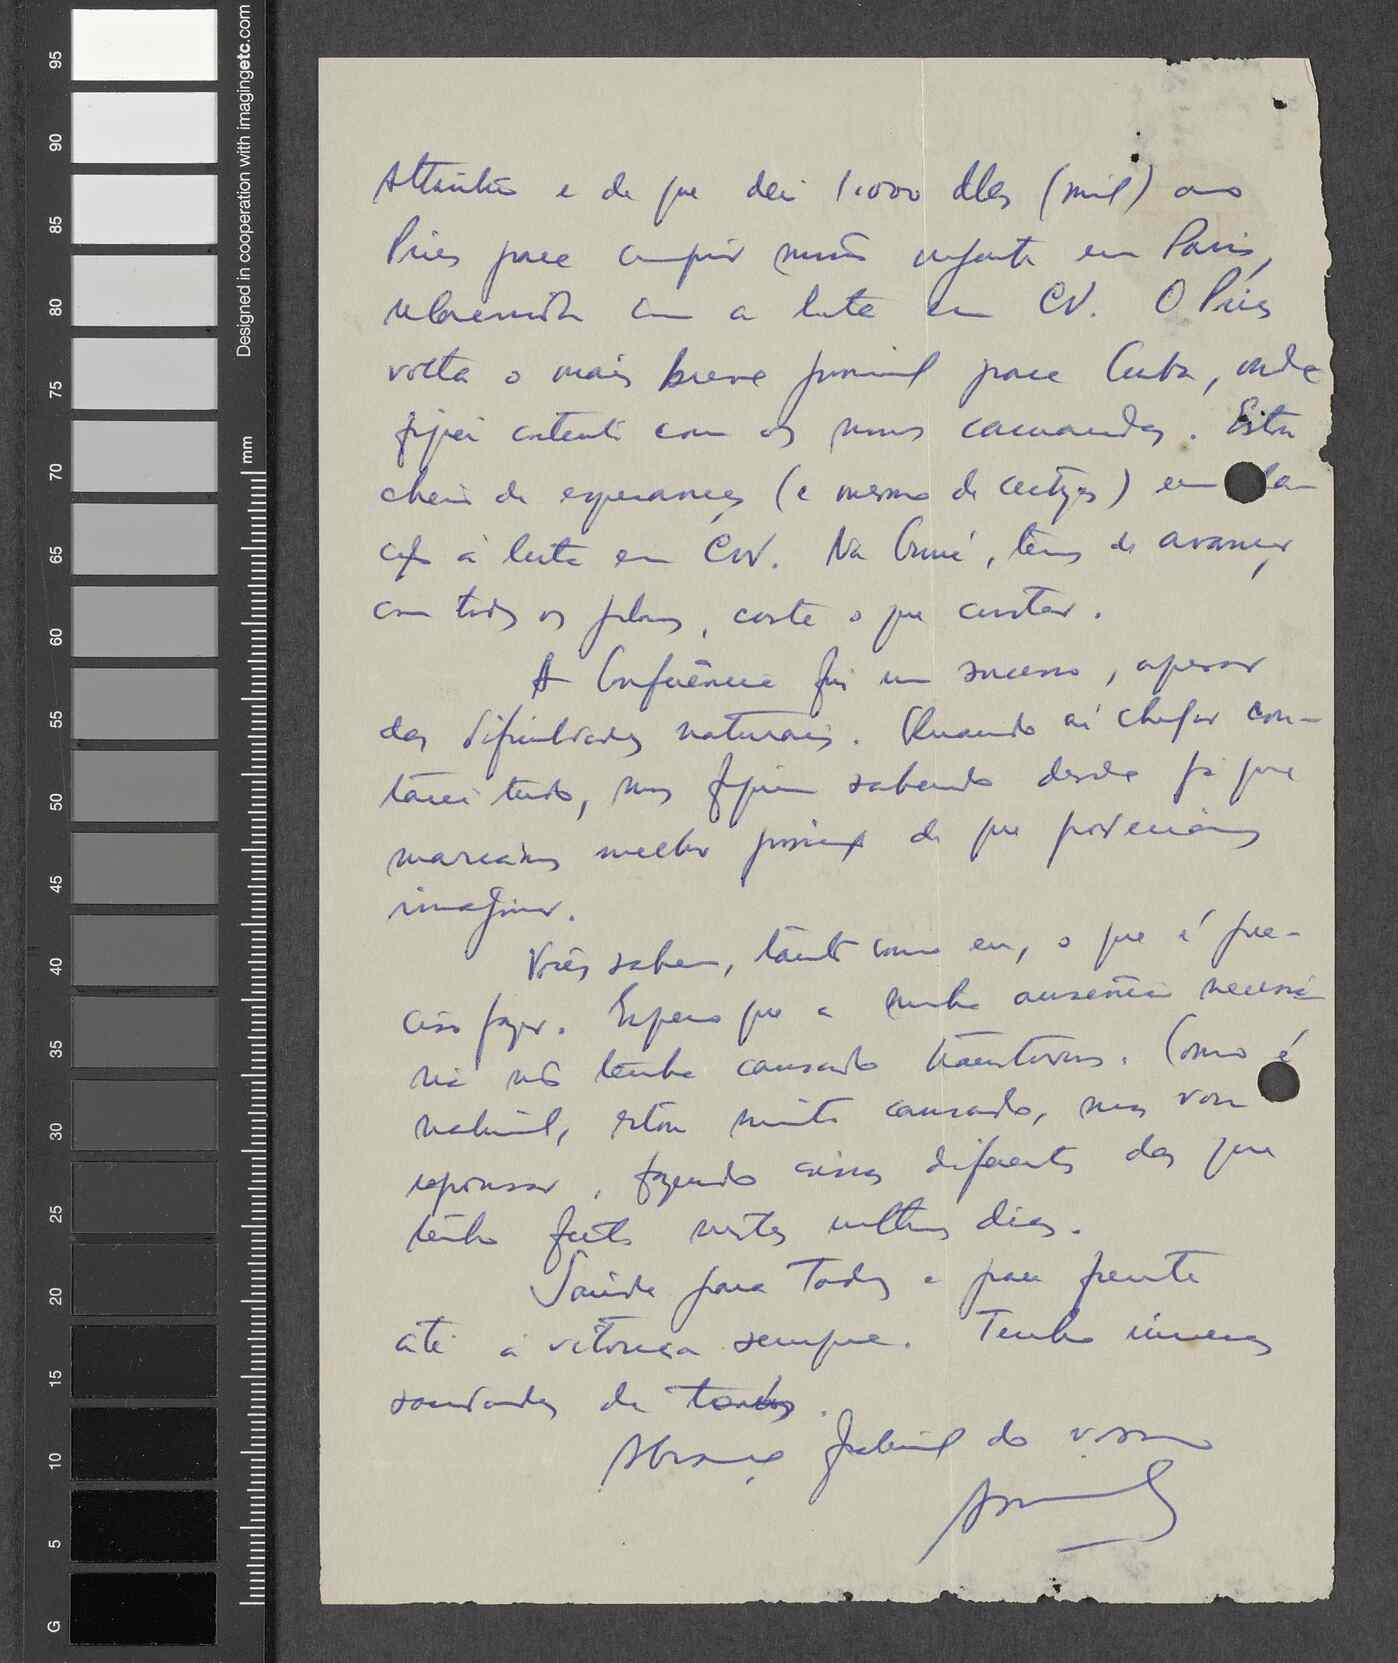 e de que dei 1.000 dlls (mil) ao
Pires para cumprir missão urgente em Paris,
relacionada com a luta em CV. O Pires
volta o mais breve possível para Cuba, onde
fiquei contente com os nossos camaradas. Estou
cheio de esperanças (e mesmo de certezas) em
à luta em CV. Na Guiné, temos de avançar
com todos os planos, custe o que custar.
A Conferência foi um sucesso, apesar
das dificuldades naturais. Quando aí chegar con-
tarei tudo, mas fiquem sabendo desde já que
marcámos melhor posição do que poderíamos
imaginar.
Vocês sabem, tanto como eu, o que é pre-
ciso fazer. Espero que a minha ausência necessá-
ria não tenha causado transtornos. Como é
natural, estou muito cansado, mas vou
repousar, fazendo coisas diferentes das que
tenho feito nestes últimos dias.
Saúde para todos e para frente
até à vitória sempre. Tenho imensas
saudades de todos.
Abraço fraternal do vosso
95
90
85
80
75
70
65
60
55
50
45
40
35
30
25
20
15
10
5
G
Designed in cooperation with imagingetc.com
mm